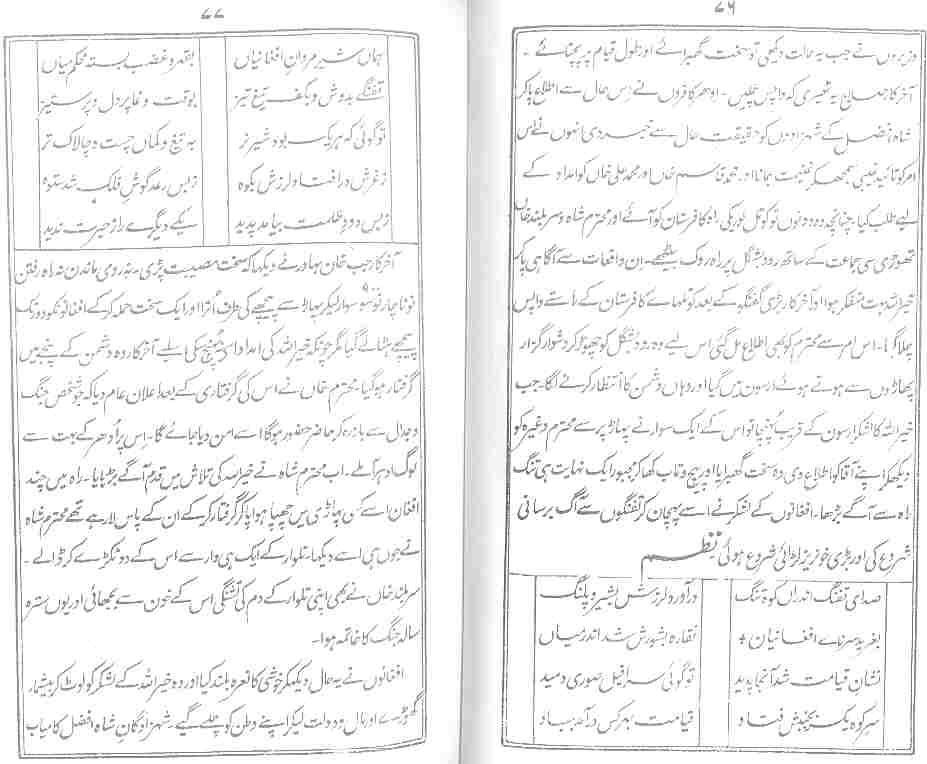 ۷۶
وزیروں نے جب یہ حالت دیکھی تو سخت گھبرائے اور طول قیام پر پچتائے -
آخر کار صلاح یہ ٹھیری کہ واپس چلیں - اودھر کافروں نے اس حال سے اطلاع پاکر
شاہ افضل کے شہزادوں کو حقیقت حال سے خبر دی انہوں نے اس
امر کو تائید غیبی سمجھکر غنیمت جانا اور محمد قاسم خان اور محمد علی خان کو امداد کے
لیے طلب کیا - چنانچہ وہ دونوں تو کوتل کی راہ کافرستان کو آئے اور محترم شاہ و سربلند خان
تھوڑی سی جماعت کے ساتھ رود بشگل پر راہ روک بیٹھے - ان واقعات سے آگاہی پاکر
خیراللہ بہت متفکر ہوا اور آخر کار بڑی گفتگو کے بعد کوتہائے کافرستان کے راستے واپس
چلا گیا - اس امر سے محترم کو بھی اطلاع مل گئی اس لیے وہ رود بشگل کو چھوڑ کر دشوار گزار
پہاڑوں سے ہوتے ہوئے ارسون میں گیا اور وہاں دشمن کا انتظار کرنے لگا - جب
خیراللہ کا لشکر ارسون کے قریب پہنچا تو اس کے ایک سوار نے پہاڑ پر سے محترم وغیرہ کو
دیکھکر اپنے آقا کو اطلاع دی وہ سخت گھبرایا اور پیچ و تاب کھا کر مجبوراً ایک نہایت ہی تنگ
راہ سے آگے بڑھا - افغانوں کے لشکر نے اسے پہچان کر تفنگوں سے آگ برسانی
شروع کی اور بڑی خونریز لڑائی شروع ہوئی نظم
صدای تفنگ اندراں کوہ تنگ درآورد لرزش بشیر و پلنگ
بغرید سرنائے افغانیان نقارہ بشورش شد اندر میاں
نشان قیامت شد آنجا پدید تو گوئی سرافیل صوری دمید
سر کوہ یکسر بجنبش فتاد قیامت بہر کس درآمد بیاد
۷۷
ہاں شیر مردان افغانیاں بقہر و غضب بستہ محکم میاں
تفنگے بدوش و بکف تیغ تیز بوقت وغا پر دل و پر ستیز
تو گوئی کہ ہر یک بود شیر نر بہ تیغ و کماں چست و چالاک تر
ز غرش درافتاد لرزش بکوہ ز بس رعد گوش فلک شد ستوہ
ز بس دود ظلمت بیامد پدید یکے دیگرے را ز حیرت ندید
آخر کار حبیب خان بہادر نے دیکھا کہ سخت مصیبت پڑی - نہ روی ماندن نہ راہ رفتن
تو ناچار نو سو سوار لیکر پہاڑ سے پیچھے کی طرف اترا اور ایک سخت حملہ کر کے افغانونکو دور تک
پیچھے ہٹا لے گیا مگر چونکہ خیراللہ کی امداد اسے نہ پہنچ سکی اس لیے آخر کار وہ دشمن کے پنجے میں
گرفتار ہو گیا - محترم خان نے اس کی گرفتاری کے بعد اعلان عام دیا کہ جو شخص جنگ
و جدال سے باز رہ کر حاضر حضور ہوگا اسے امن دیا جائے گا - اس پر اُدھر کے بہت سے
لوگ ادہر آملے - اب محترم شاہ نے خیراللہ کی تلاش میں قدم آگے بڑھایا - راہ میں چند
افغان اسے کسی پہاڑی میں چھپا ہوا پا کر گرفتار کر کے ان کے پاس لا رہے تھے محترم شاہ
نے جوں ہی اسے دیکھا - تلوار کے ایک ہی وار سے اس کے دو ٹکڑے کر ڈالے -
سربلند خان نے بھی اپنی تلوار کے دم کی تشنگی اس کے خون سے بجھائی اور یوں سترہ
سالہ جنگ کا خاتمہ ہوا -
افغانوں نے یہ حال دیکھکر خوشی کا نعرہ بلند کیا اور وہ خیراللہ کے لشکر کو لوٹ کر بیشمار
گھوڑے اور مال و دولت لیکر اپنے وطن کو چلے گیے - شہزادگان شاہ افضل کامیاب